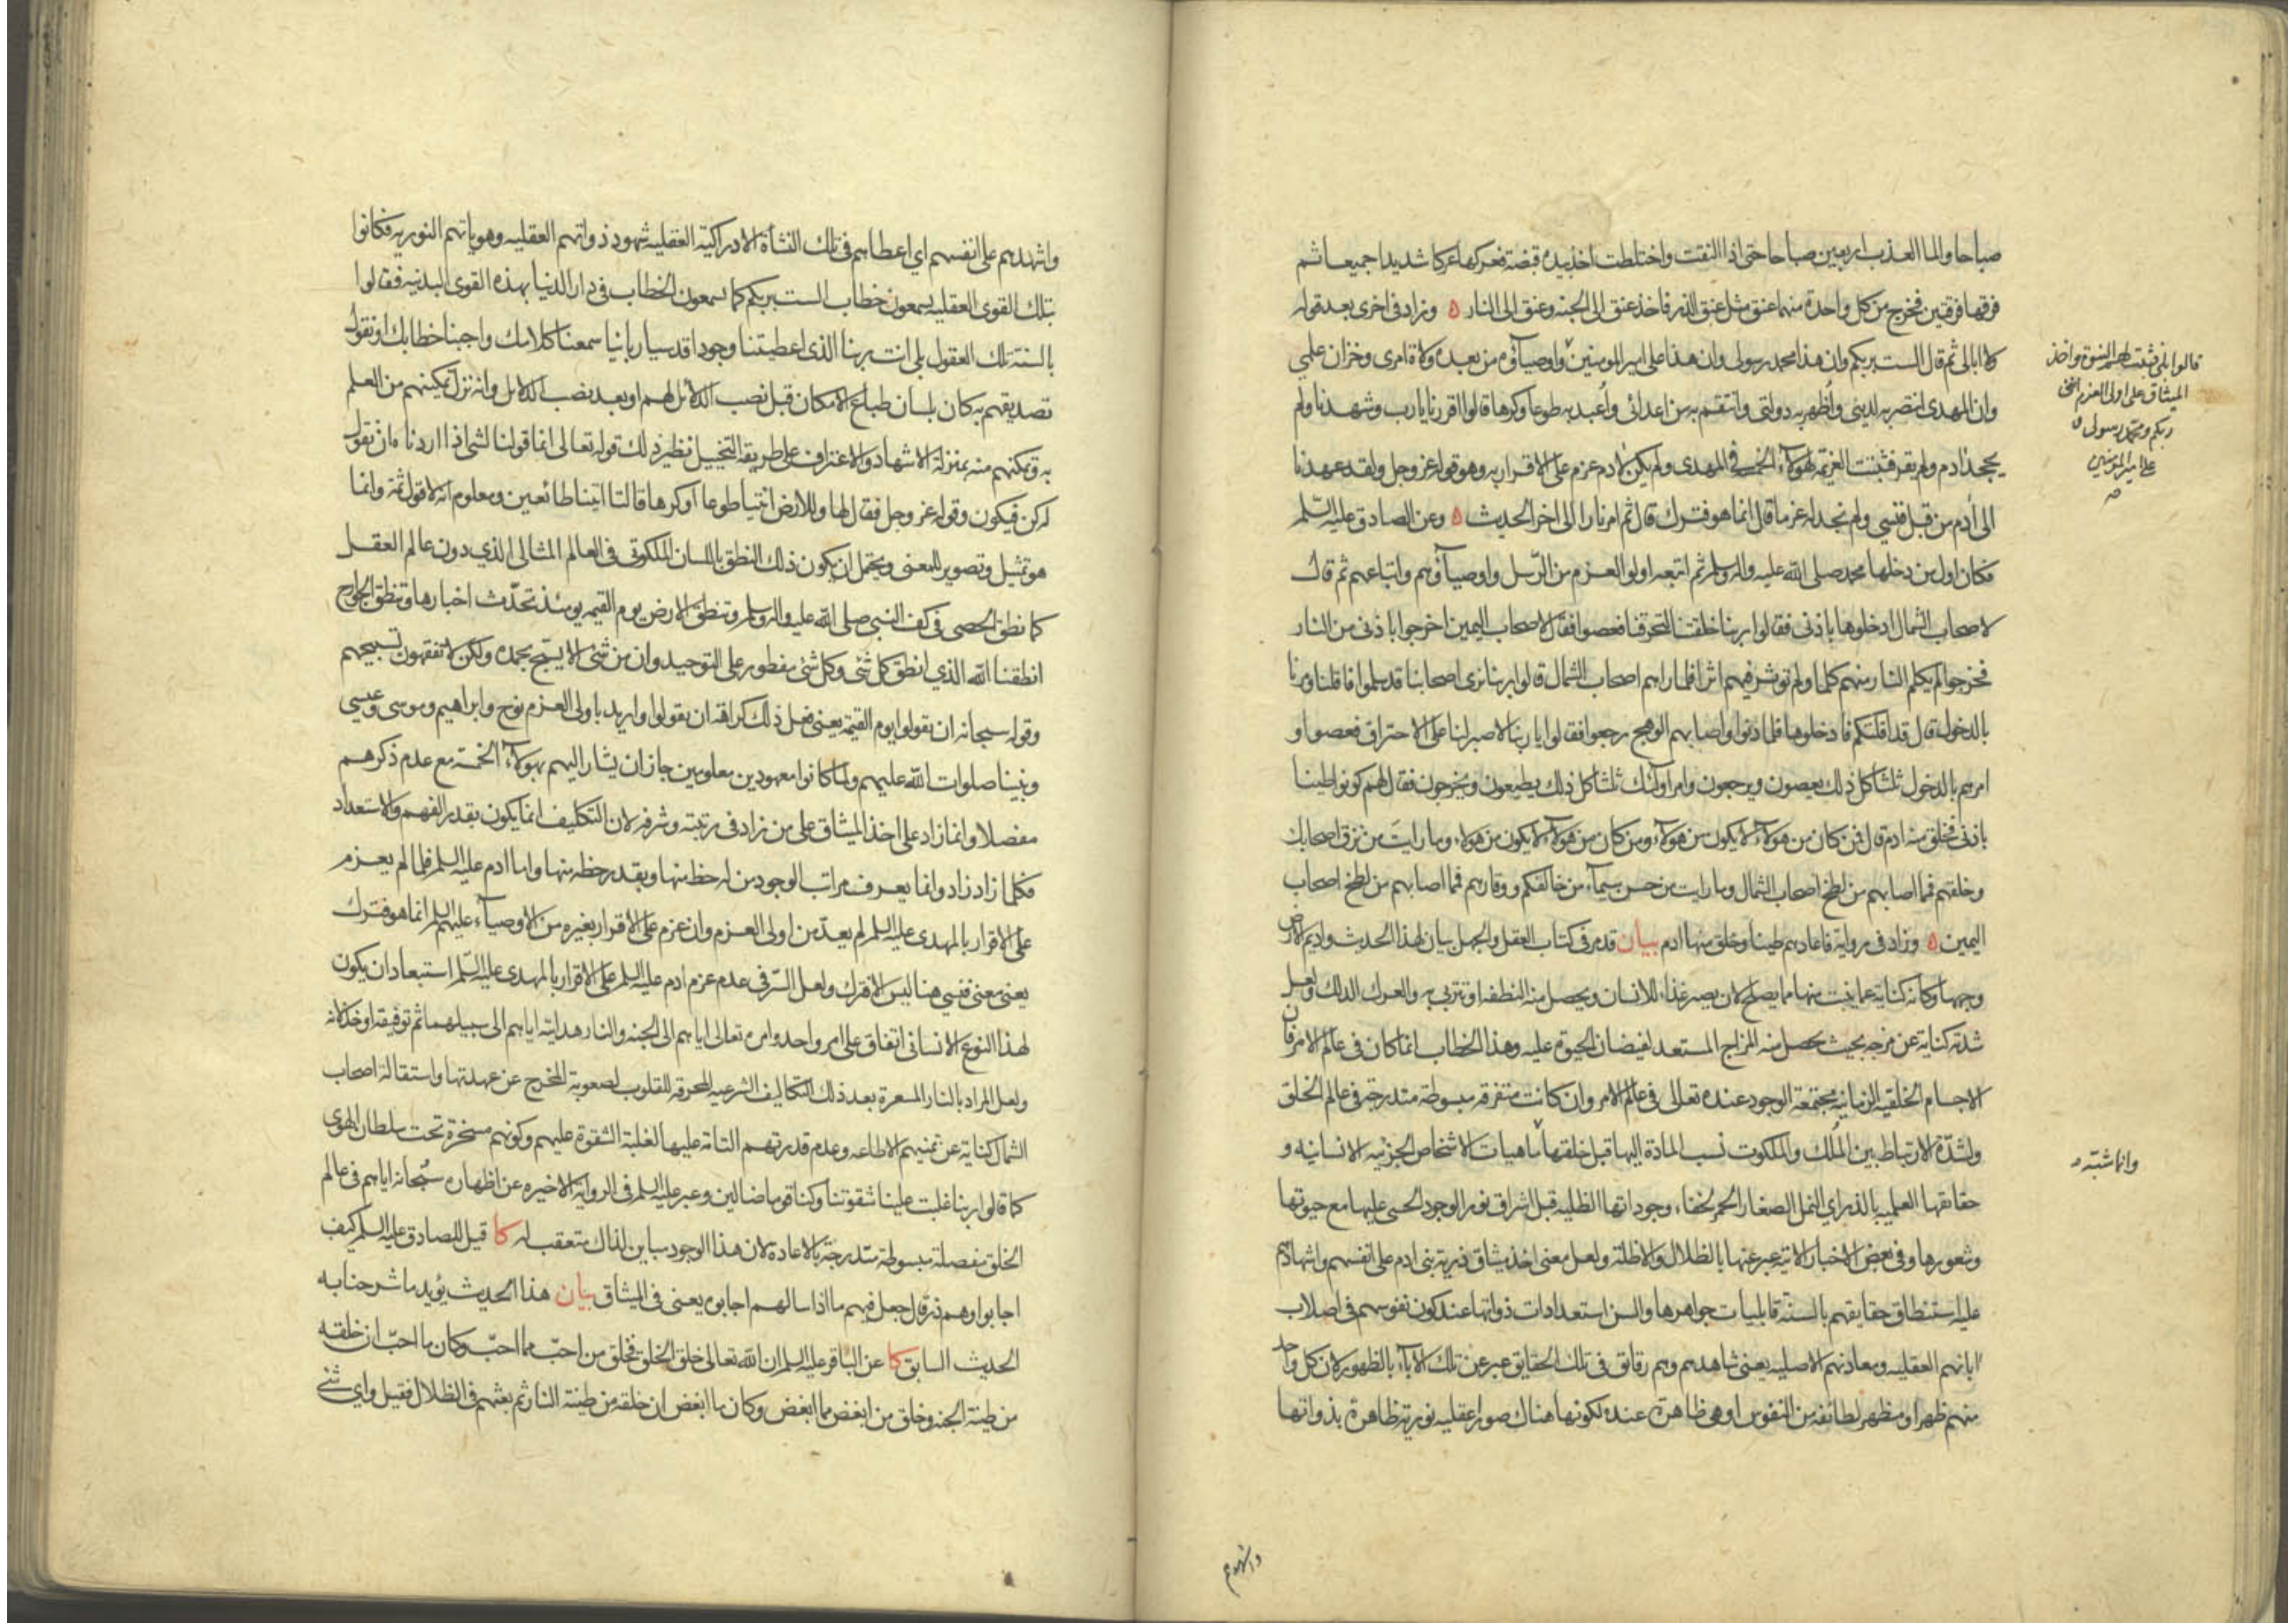 صباحا والماء العذب اربعين صباحا حتى اذا التقت واختلطت اخذ بيده قبضة فعركها عركا شديدا جميعا ثم
فرقها فرقتين فخرج من كل واحدة منهما عنق مثل عنق الذر فاخذ عنق الى الجنه وعنق الى النار ه وزاد فى اخرى بعد قوله
ولا ابالى ثم قال الست بربكم وان هذا محمد رسولى وان هذا على امير المومنين واوصياؤه من بعده ولاة امرى وخزان علمى
وان المهدى انتصر به لدينى واُظهر به دولتى وانتقم به من اعدائى واُعبد به طوعا وكرها قالوا اقررنا يا رب وشهدنا ولم
يجحد ادم ولم يقر فثبتت العزيمة لهولاء الخمسة فى المهدى ولم يكن لادم عزم على الاقرار به وهو قوله عز وجل ولقد عهدنا
الى أدم من قبل فنسي ولم نجد له عزما قال انما هو فترك قال ثم امر نارا الى اخر الحديث ه وعن الصادق عليه السّلم
فكان اول من دخلها محمد صلى الله عليه واله وسلم ثم اتبعه اولو العزم من الرّسل واوصياؤهم واتباعهم ثم قال
لاصحاب الشمال ادخلوها باذنى فقالوا ربنا خلقتنا لتحرقنا فعصوا فقال لاصحاب اليمين اخرجوا باذنى من النار
فخرجوا لم يكلم النار منهم كلما ولم توثر فيهم اثرا فلما راهم اصحاب الشمال قالوا ربنا نرى اصحابنا قد سلموا فاقلنا ومرنا
بالدخول قال قد اقلتكم فادخلوها فلما دنوا واصابهم الوهج رجعوا فقالوا يا ربنا لا صبر لنا على الاحتراق فعصوا و
امرهم بالدخول ثلثا كل ذلك يعصون ويرجعون وامر اولئك ثلثا كل ذلك يطيعون ويخرجون فقال لهم كونوا طينا
باذنى فخلق منه ادم قال فمن كان من هولاء لا يكون من هولاء ومن كان من هولاء لا يكون من هولاء وما رايتَ من نزق اصحابك
وخلقهم فمما اصابهم من لطخ اصحاب الشمال وما رايت من حسن سيماء من خالفكم ووقارهم فمما اصابهم من لطخ اصحاب
اليمين ه وزاد فى رواية فاعادهم طينا وخلق منها ادم بيان قد مر فى كتاب العقل والجهل بيان لهذا الحديث واديم الارض
وجهها وكانه كناية عما ينبت منها مما يصلح لان يصير غذاء للانسان ويحصل منه النطفه او تتربى به والعرك الدلك ولعل
شدته كناية عن مزجه بحيث يحصل منه المزاج المستعد لفيضان الحيوة عليه وهذا الخطاب انما كان فى عالم الامر فان
الاجسام الخلقيه الزمانيه مجتمعة الوجود عنده تعالى فى عالم الامر وان كانت متفرقه مبسوطة متدرجة فى عالم الخلق
ولشدّة الارتباط بين المُلك والملكوت نسب المادة اليها قبل خلقها ماهيات الاشخاص الجزئيه الانسانيه و
حقائقها العلميه بالذر اي النمل الصغار الحمر لخفاء وجوداتها الظليه قبل اشراق نور الوجود الحسي عليها مع حيوتها
وشعورها وفى بعض الاخبار الاتية عبر عنها بالظلال والاظلة ولعل معنى اخذ ميثاق ذرية بنى ادم على انفسهم واشهادهم
عليه استنطاق حقايقهم بالسنة قابليات جواهرها والسن استعدادات ذواتها عند كون نفوسهم فى اصلاب
ابائهم العقليه ومعادنهم الاصليه يعنى شاهدهم وهم رقائق فى تلك الحقايق عبر عن تلك الآباء بالظهور لان كل واحد
منهم ظهر او مظهر لطائفه من النفوس او هى ظاهرة عنده لكونها هناك صورا عقليه نورية ظاهرة بذواتها
قالوا بلى فثبتت لهم النبوة واخذ
الميثاق على اولى العزم اننى
ربكم ومحمد رسولى و
على امير المومنين
صه
وانما شبه
واشهدهم
واشهدهم على انفسهم اي اعطاهم فى تلك النشأة الادراكيّة العقليه شهود ذواتهم العقليه وهوياتهم النوريه فكانوا
بتلك القوى العقليه يسمعون خطاب الست بربكم كما يسمعون الخطاب فى دار الدنيا بهذه القوى البدنيه فقالوا
بالسنة تلك العقول بلى انت ربنا الذى اعطيتنا وجودا قدسيا ربانيا سمعنا كلامك واجبنا خطابك او نقول
تصديقهم به كان بلسان طباع الامكان قبل نصب الدلائل لهم او بعد نصب الدلائل وانه نزل تمكينهم من العلم
به وتمكنهم منه بمنزلة الاشهاد والاعتراف على طريقة التخييل نظير ذلك قوله تعالى انما قولنا لشئ اذا اردناه ان نقول
له كن فيكون وقوله عز وجل فقال لها وللارض ائتيا طوعا أو كرها قالتا اتينا طائعين ومعلوم انه لا قول ثمة وانما
هو تمثيل وتصوير للمعنى ويحتمل ان يكون ذلك النطق باللسان الملكوتى فى العالم المثالى الذي دون عالم العقل
كما نطق الحصى فى كف النبي صلى الله عليه واله وسلم وتنطق الارض يوم القيمه يومئذ تحدّث اخبارها وتنطق الجوارح
انطقنا الله الذي انطق كل شئ وكل شئ مفطور على التوحيد وان من شئ الا يسبح بحمده ولكن لا تفقهون تسبيحهم
وقوله سبحانه ان تقولوا يوم القيمة يعنى فعل ذلك كراهة ان يقولوا واريد باولى العزم نوح وابراهيم وموسى وعيسى
ونبينا صلوات الله عليهم ولما كانوا معهودين معلومين جاز ان يشار اليهم بهولاء الخمسة مع عدم ذكرهم
مفصلا وانما زاد على اخذ الميثاق على من زاد فى رتبته وشرفه لان التكليف انما يكون بقدر الفهم والاستعداد
فكلما زاد زاد وانما يعرف مراتب الوجود من له حظ منها وبقدر حظه منها واما ادم عليه السلم فلما لم يعزم
على الاقرار بالمهدى عليه السلم لم يعدّ من اولى العزم وان عزم على الاقرار بغيره من الاوصياء عليهم السلم انما هو فترك
يعنى معنى فنسي هنا ليس الا فترك ولعل السّر فى عدم عزم ادم عليه السلم على الاقرار بالمهدى عليه السّلم استبعاد ان يكون
لهذا النوع الانسانى اتفاق على امر واحد وامره تعالى اياهم الى الجنه والنار هدايته اياهم الى سبيلهما ثم توفيقه او خذلانه
ولعل المراد بالنار المسعرة بعد ذلك التكاليف الشرعيه المحرقه للقلوب لصعوبة المخرج عن عهدتها واستقالة اصحاب
الشمال كناية عن تمنيهم الاطاعه وعدم قدرتهم التامة عليها لغلبة الشقوة عليهم وكونهم مسخرة تحت سلطان الهوى
كما قالوا ربنا غلبت علينا شقوتنا وكنا قوما ضالين وعبر عليه السلم فى الرواية الاخيره عن اظهاره سُبحانه اياهم فى عالم
الخلق مفصلة مبسوطة متدرجة بالاعادة لان هذا الوجود مباين لذاك متعقب له كا قيل للصادق عليه السلم كيف
اجابوا وهم ذر قال جعل فيهم ما اذا سالهم اجابوه يعنى فى الميثاق بيان هذا الحديث يؤيد ما شرحنا به
الحديث السابق كا عن الباقر عليه السلم ان الله تعالى خلق الخلق فخلق من احبّ مما احبّ وكان ما احبّ ان خلقه
من طينة الجنه وخلق من ابغض مما ابغض وكان ما ابغض ان خلقه من طينة النار ثم بعثهم فى الظلال فقيل واي شئ